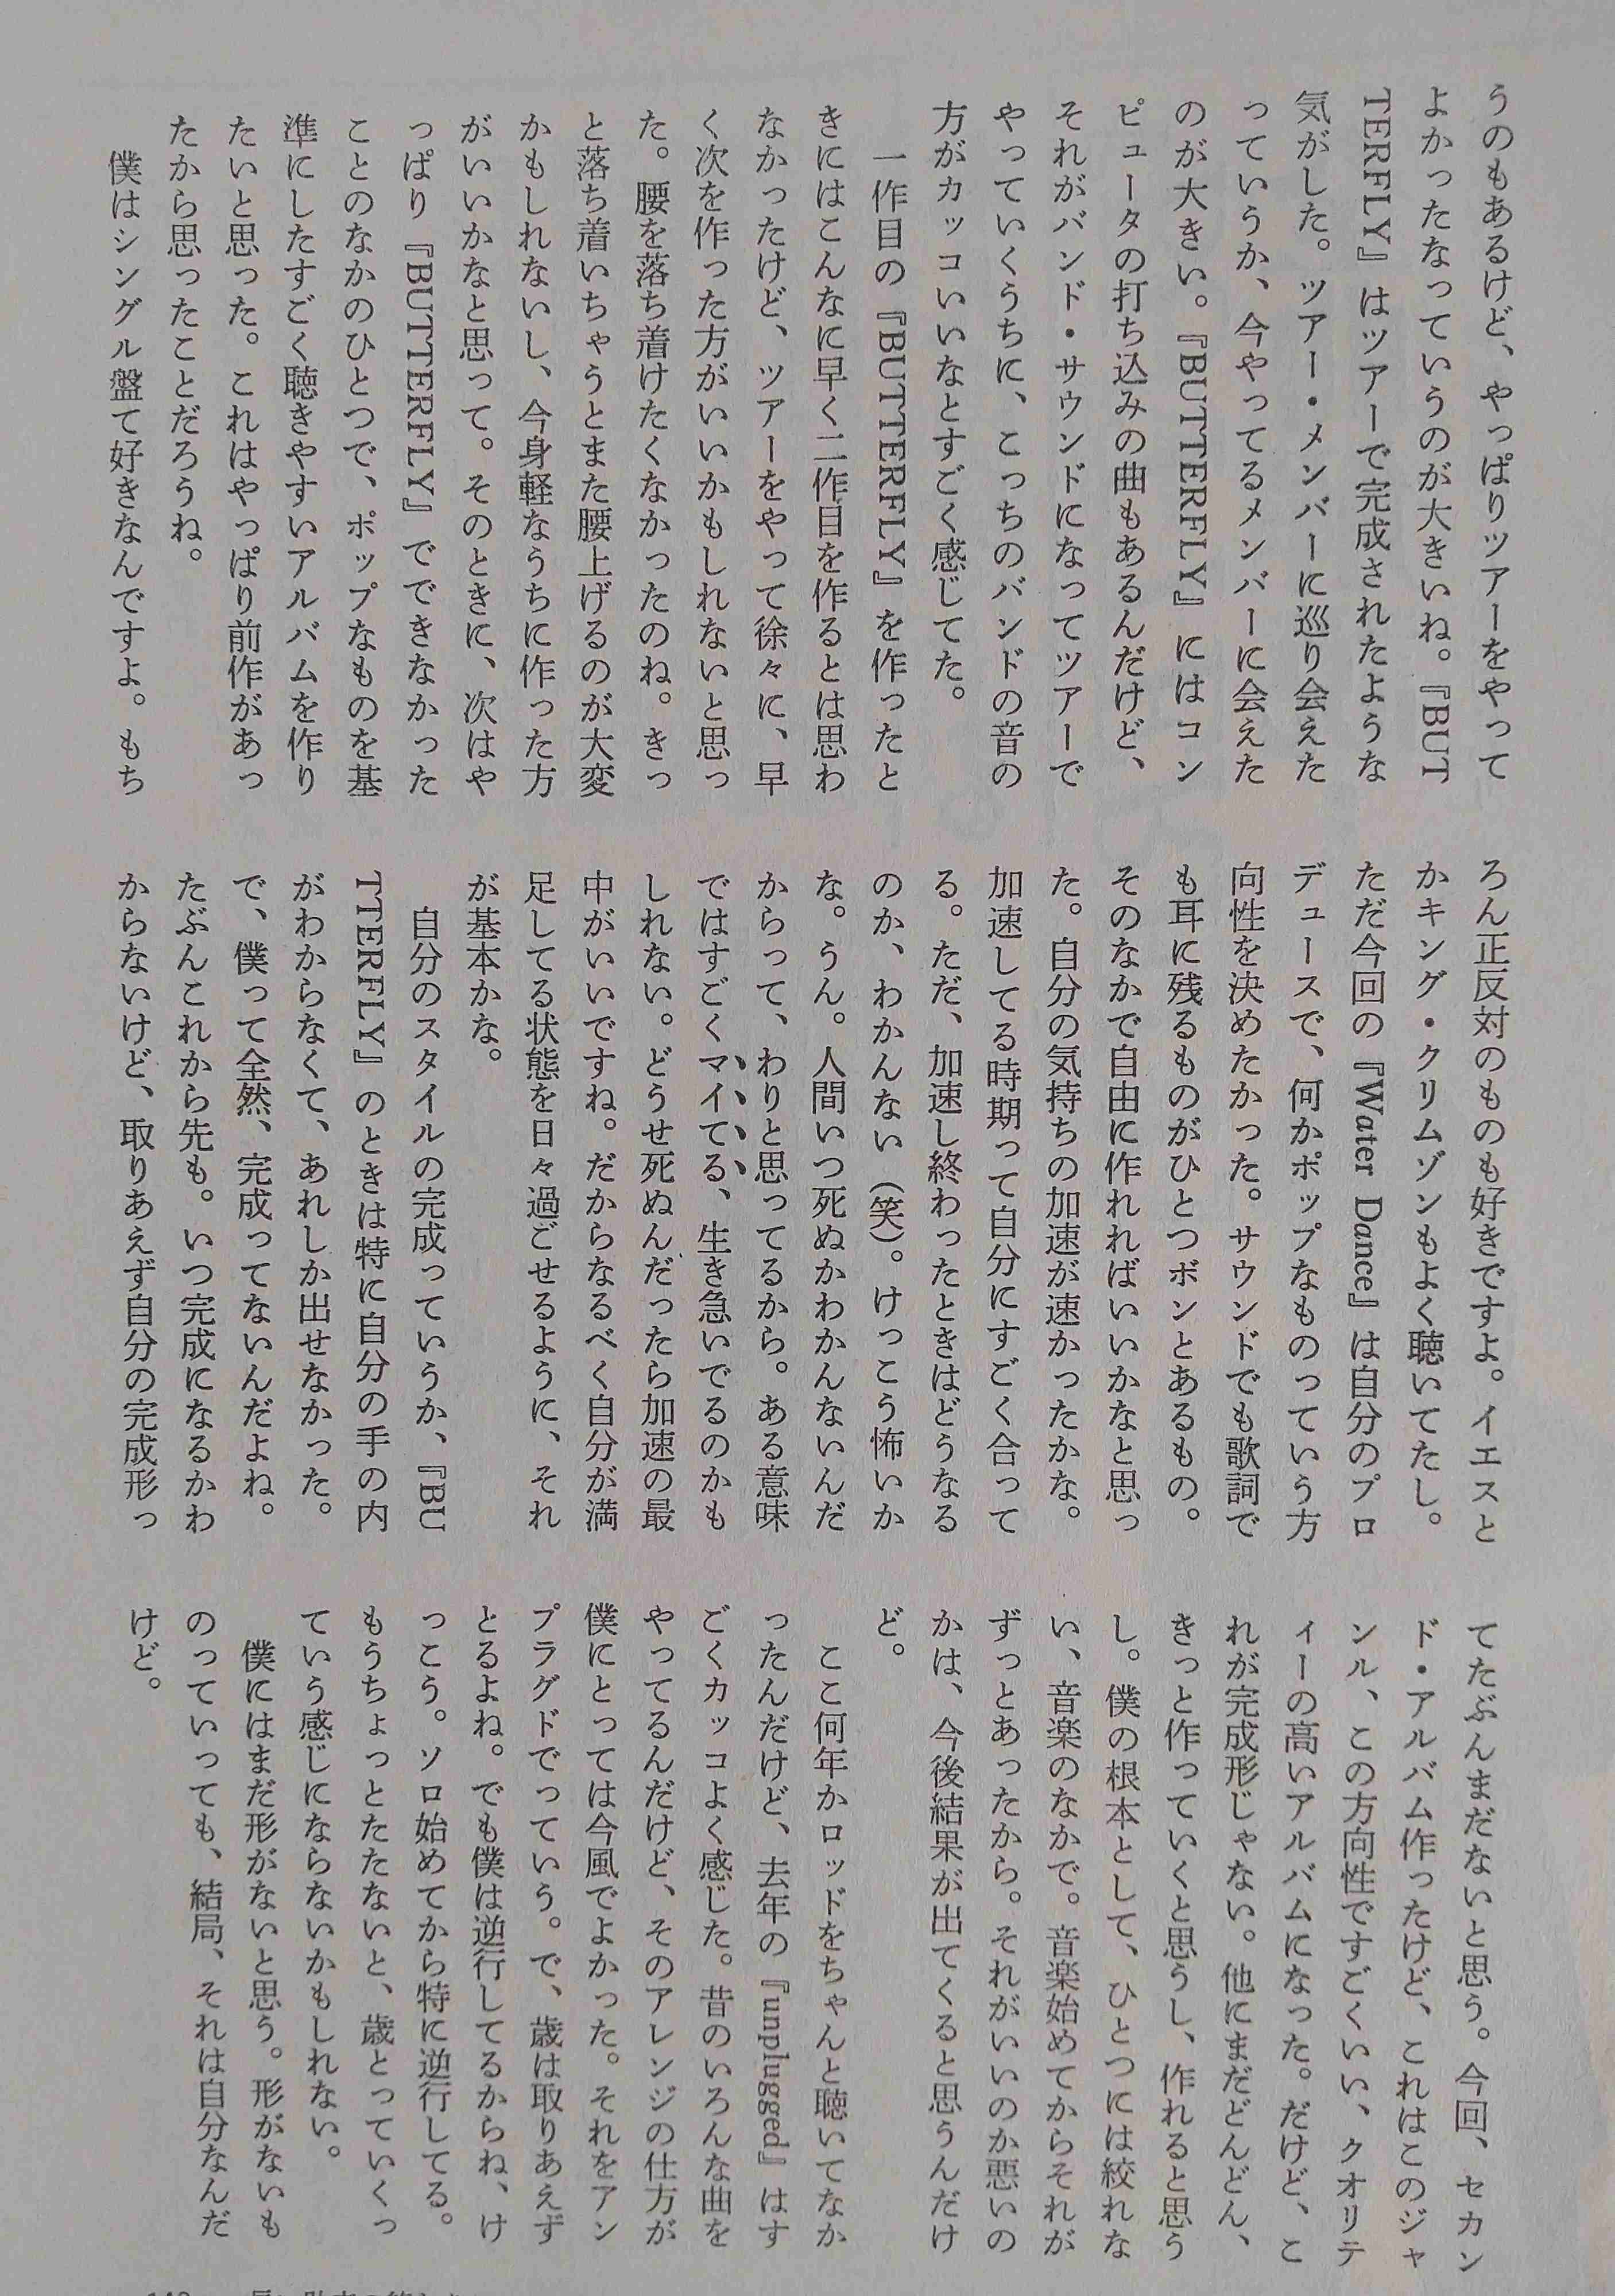 うのもあるけど、やっぱりツアーをやって
よかったなっていうのが大きいね。『BUT
TERFLY』はツアーで完成されたような
気がした。ツアー・メンバーに巡り会えた
っていうか、今やってるメンバーに会えた
のが大きい。『BUTTERFLY』にはコン
ピュータの打ち込みの曲もあるんだけど、
それがバンド・サウンドになってツアーで
やっていくうちに、こっちのバンドの音の
方がカッコいいなとすごく感じてた。
一作目の『BUTTERFLY』を作ったと
きにはこんなに早く二作目を作るとは思わ
なかったけど、ツアーをやって徐々に、早
く次を作った方がいいかもしれないと思っ
た。腰を落ち着けたくなかったのね。きっ
と落ち着いちゃうとまた腰上げるのが大変
かもしれないし、今身軽なうちに作った方
がいいかなと思って。そのときに、次はや
っぱり『BUTTERFLY』でできなかった
ことのなかのひとつで、ポップなものを基
準にしたすごく聴きやすいアルバムを作り
たいと思った。これはやっぱり前作があっ
たから思ったことだろうね。
僕はシングル盤て好きなんですよ。もち
ろん正反対のものも好きですよ。イエスと
かキング・クリムゾンもよく聴いてたし。
ただ今回の『Water Dance』は自分のプロ
デュースで、何かポップなものっていう方
向性を決めたかった。サウンドでも歌詞で
も耳に残るものがひとつボンとあるもの。
そのなかで自由に作れればいいかなと思っ
た。自分の気持ちの加速が速かったかな。
加速してる時期って自分にすごく合って
る。ただ、加速し終わったときはどうなる
のか、わかんない（笑）。けっこう怖いか
な。うん。人間いつ死ぬかわかんないんだ
からって、わりと思ってるから。ある意味
ではすごくマイてる、生き急いでるのかも
しれない。どうせ死ぬんだったら加速の最
中がいいですね。だからなるべく自分が満
足してる状態を日々過ごせるように、それ
が基本かな。
自分のスタイルの完成っていうか、『BU
TTERFLY』のときは特に自分の手の内
がわからなくて、あれしか出せなかった。
で、僕って全然、完成ってないんだよね。
たぶんこれから先も。いつ完成になるかわ
からないけど、取りあえず自分の完成形っ
てたぶんまだないと思う。今回、セカン
ド・アルバム作ったけど、これはこのジャ
ンル、この方向性ですごくいい、クオリテ
ィーの高いアルバムになった。だけど、こ
れが完成形じゃない。他にまだどんどん、
きっと作っていくと思うし、作れると思う
し。僕の根本として、ひとつには絞れな
い、音楽のなかで。音楽始めてからそれが
ずっとあったから。それがいいのか悪いの
かは、今後結果が出てくると思うんだけ
ど。
ここ何年かロッドをちゃんと聴いてなか
ったんだけど、去年の『unplugged』はす
ごくカッコよく感じた。昔のいろんな曲を
やってるんだけど、そのアレンジの仕方が
僕にとっては今風でよかった。それをアン
プラグドでっていう。で、歳は取りあえず
とるよね。でも僕は逆行してるからね、け
っこう。ソロ始めてから特に逆行してる。
もうちょっとたたないと、歳とっていくっ
ていう感じにならないかもしれない。
僕にはまだ形がないと思う。形がないも
のっていっても、結局、それは自分なんだ
けど。